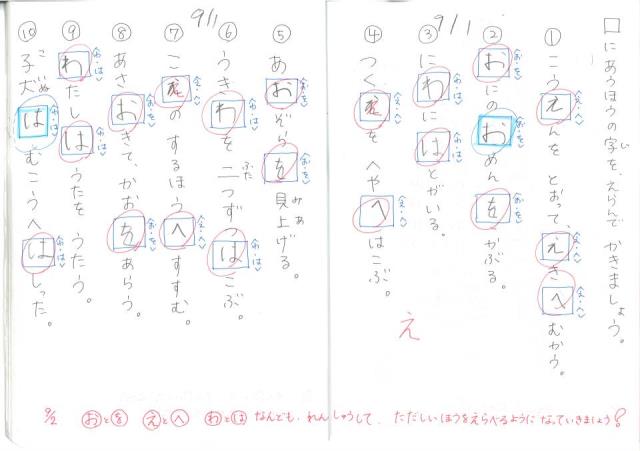 □にあうほうの字を、えらんで かきましょう。
じ
9/1
① こうえんを とおって、えきへ むかう。
② おにの おめんを かぶる。
③ にわに はとがいる。
④ つくえを へやへ はこぶ。
え
9/1
⑤ あおぞらを 見上げる。
みあ
⑥ うきわを 二つずつ はこぶ。
ふた
⑦ こえの するほうへ すすむ。
⑧ あさ おきて、かおを あらう。
⑨ わたしは うたを うたう。
⑩ 子犬は むこうへ はしった。
こいぬ
9/2 おとを えとへ わとは なんども、れんしゅうして、ただしいほうをえらべるように なっていきましょう!